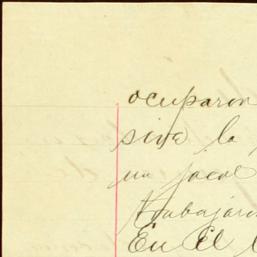 ocuparon
sive la
un jacal
trabajaron
En el